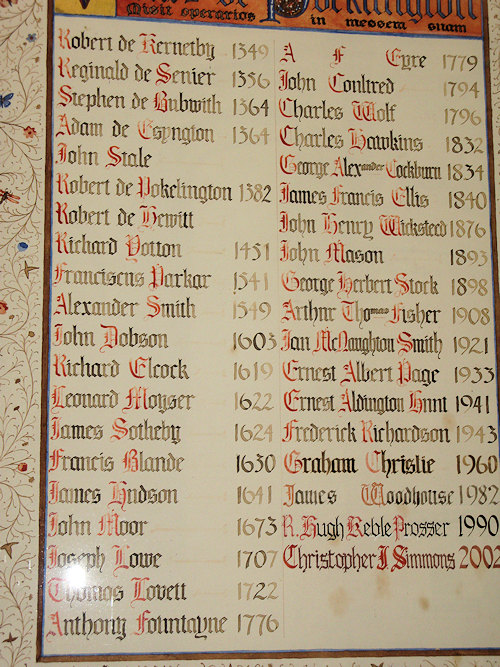 de Pocklington
Misit operarios in messem suam
Robert de Kernetby 1349
Reginald de Senier 1356
Stephen de Bubwith 1364
Adam de Esyngton 1364
John Stale
Robert de Pokelington 1382
Robert de Hewitt
Richard Yotton 1451
Franciscus Parkar 1541
Alexander Smith 1549
John Dobson 1603
Richard Elcock 1619
Leonard Moyser 1622
James Sotheby 1624
Francis Blande 1630
James Hudson 1641
John Moor 1673
Joseph Lowe 1707
Thomas Lovett 1722
Anthony Fountayne 1776
A F Eyre 1779
John Coultred 1794
Charles Wolf 1796
Charles Hawkins 1832
George Alexander Cockburn 1834
James Francis Ellis 1840
John Henry Wicksteed 1876
John Mason 1893
George Herbert Stock 1898
Arthur Thomas Fisher 1908
Ian McNaughton Smith 1921
Ernest Albert Page 1933
Ernest Aldington Hunt 1941
Frederick Richardson 1943
Graham Christie 1960
James Woodhouse 1982
R. Hugh Keble Prosser 1990
Christopher J. Simmons 2002